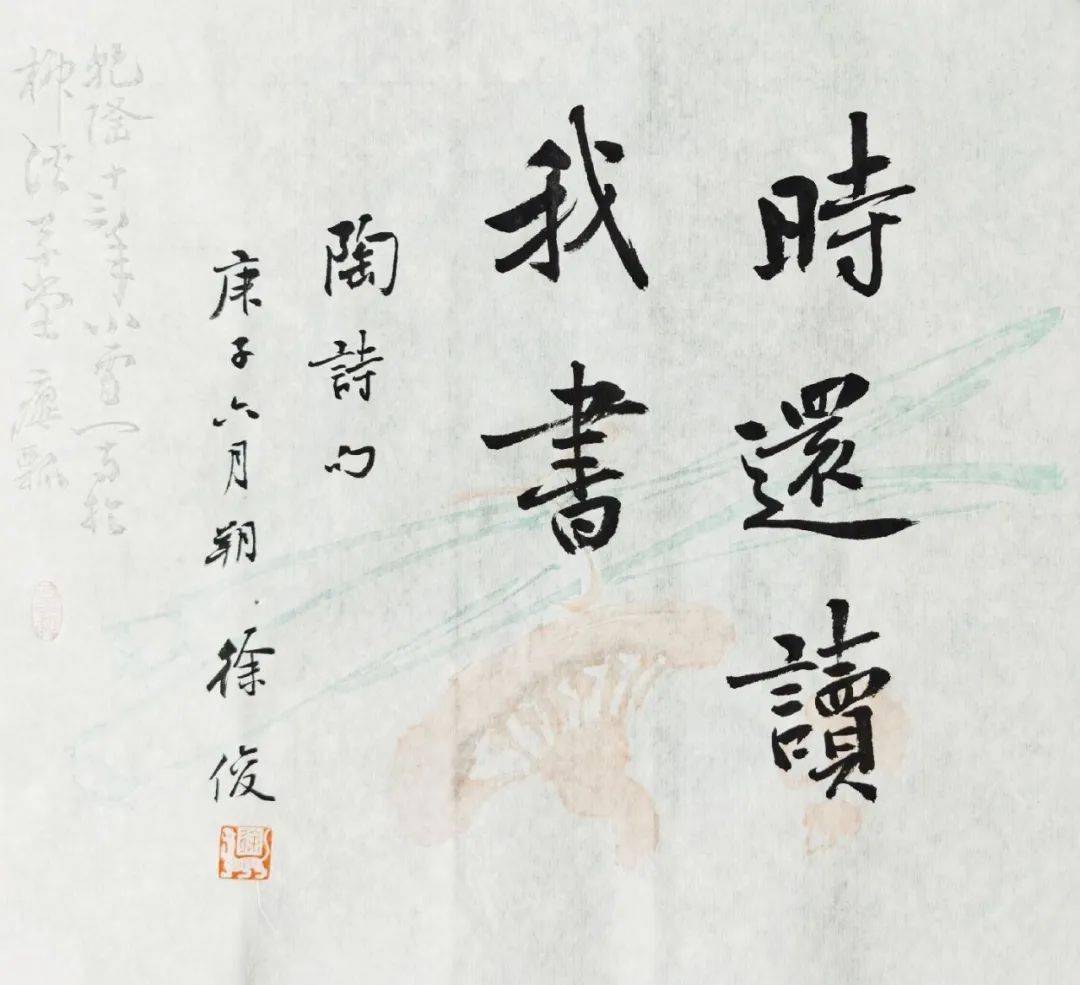 時還讀
我書
陶詩句
庚子六月朔 徐俊
乾隆十三年小雪一日於
柳溪草堂